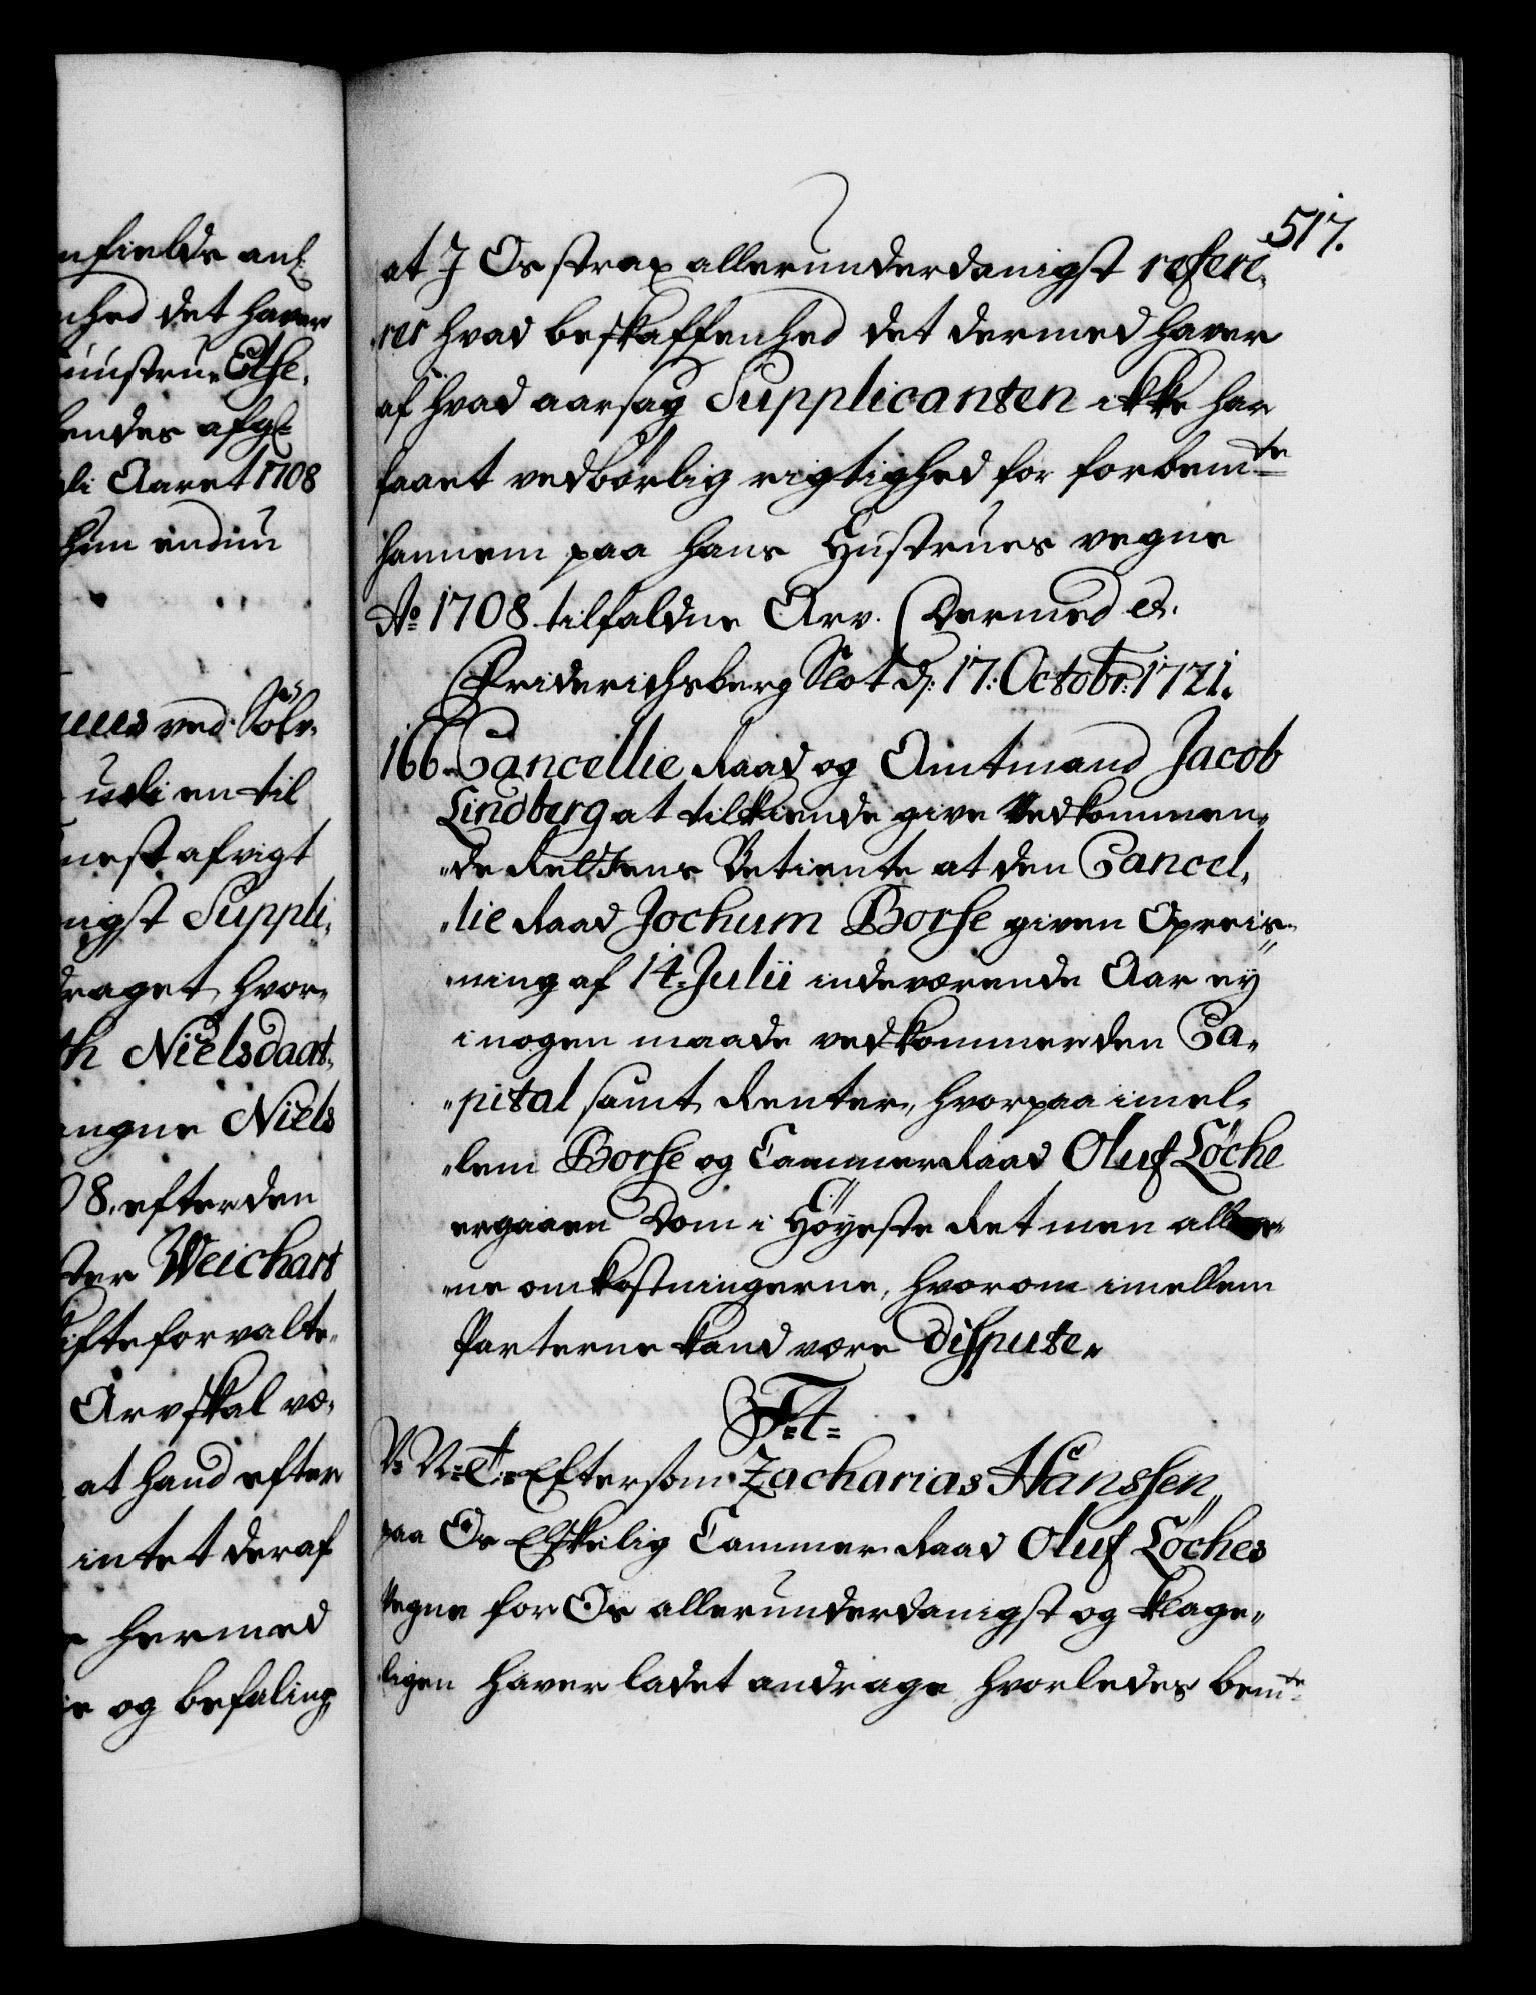 nfields anl:
nhed det haver
uustrue Else,
hendes afgl:
li Aaret 1708
hun endnu
ved Sølv,
en til
nest afvigt
nigst Suppli,
draget, hvor,
th Nielsdaat,
angne Niels
08. efter den
ster Weichart
kifteforvalte,
Arv skal væ,
at hand efter
intet deraf
hermed
ie og befaling
517.
at I Os strax allerunderdanigst refere,
,rer hvad beskaffenhed det dermed haver
af hvad aarsag Supplicanten ikke har
faaet vedbørlig rigtighed for forbemte
hannem paa hans Hustrues vegne
Ao 1708 tilfaldne Arv. Dermed et.
Friderichsberg Slot d: 17: Octobr: 1721.
166. Cancellie Raad og Amtmand Jacob
Lindberg at tilkiende give Vedkommen,
,,de Rettens Betiente at den Cancel,
,,lie Raad Jochum Borse given Opreis,,
,ning af 14. Julii indeværende Aar ey
i nogen maade vedkommer den Ca,
,,pital samt Renter, hvorpaa imel,
,,lem Borse og Cammer Raad Oluf Löche
ergaaen Dom i Høyeste Ret men alle,
,ne omkostningerne, hvorom imellem
Parterne kand være Dispute.
F: 4:
V: V: T: Eftersom Zacharias Hanssen
paa Os Elskelig Cammer Raad Oluf Löches
Vegne for Os allerunderdanigst og klage,,
ligen haver ladet andrage, hvorledes bemte